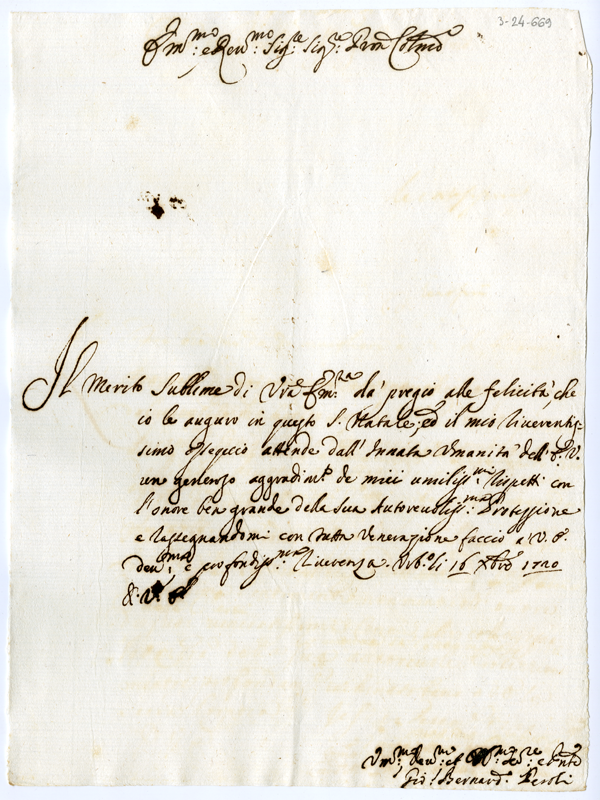 3-24-669
Em.mo e Rev.mo Sig.re Sig.re Pron Col.mo
Il Merito Sublime di Vrã Em.za dà pregio alle felicità, che
io le auguro in questo S. Natale; ed il mio riverentis-
simo ossequio attende dall'Innata Umanità dell'E. V.
un generoso aggradim.to de miei umiliss.mi rispetti con
l'onore ben grande della sua Autorevoliss.ma Protezzione
e rassegnandomi con tutta Venerazione faccio a V. E.
dev.ma e profondiss.ma riverenza. Urb.o li 16 Xbre 1720
D. V. E.
Um.mo Dev.mo et Obb.mo Ser.re
Gio: Bernard.